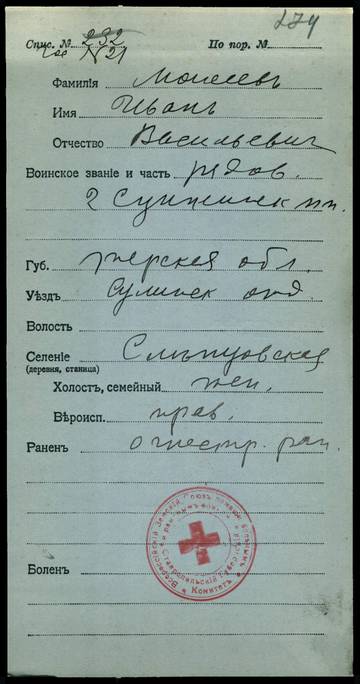 274
Спис. № 232 По пор. №
№ 21
Фамилія Моисеевъ
Имя Иванъ
Отчество Васильевич
Воинское званіе и часть рядов.
2 Сунженск пл.
Губ. терская обл.
Уѣздъ Сунженск отд.
Волость
Селеніе Слѣпцовская
(деревня, станица)
Холостъ, семейный жен.
Вѣроисп. прав.
Раненъ огнестр. ран.
Всероссійскій Земскій Союзъ помощи больнымъ и раненымъ воинамъ
Ставропольскій Губернск
Комитетъ
Боленъ